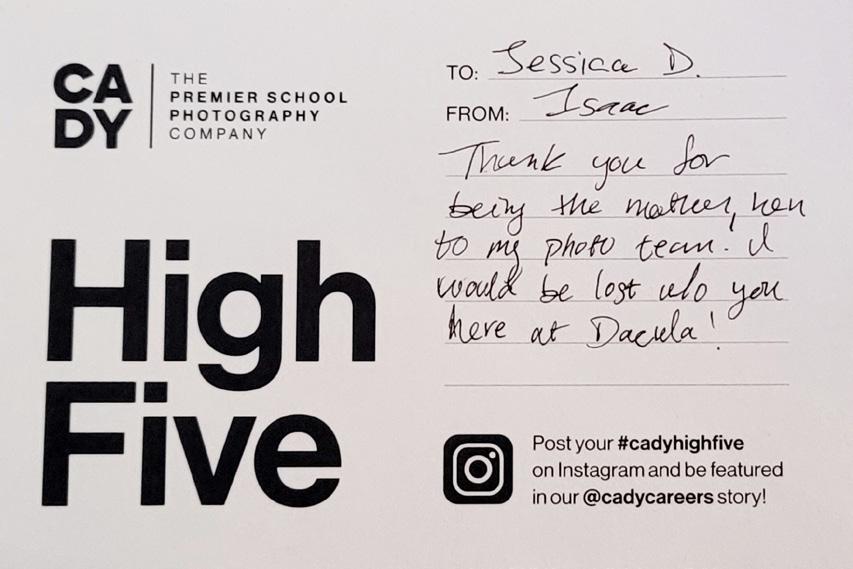 CA
DY
THE
PREMIER SCHOOL
PHOTOGRAPHY
COMPANY
High
Five
TO: Jessica D.
FROM: Isaac
Thank you for
being the mother hen
to my photo team! I
would be lost w/o you
here at Dacula!
Post your #cadyhighfive
on Instagram and be featured
in our @cadycareers story!